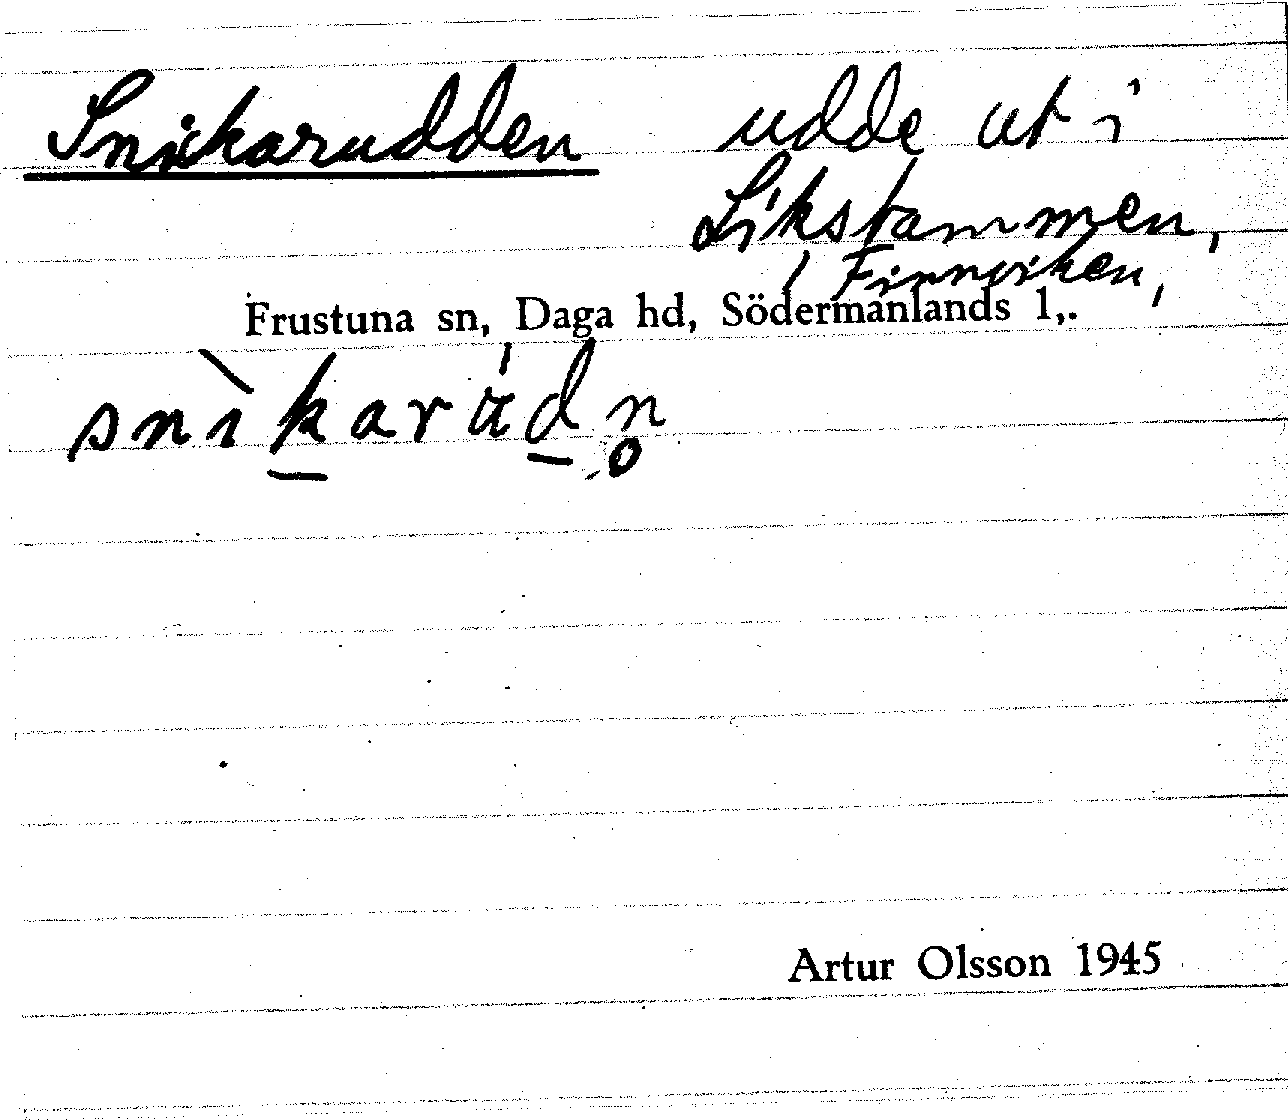 Snikarudden udde ut i
Likstammen,
i Finnviken,
Frustuna sn, Daga hd, Södermanlands l,.
snìk̲arúd̲n̥
Artur Olsson 1945